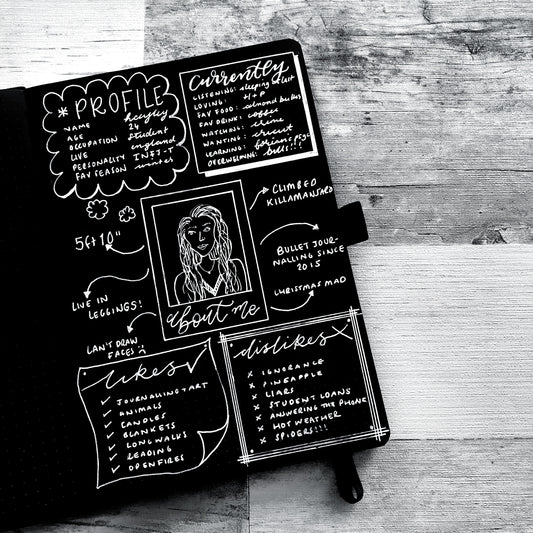 * PROFILE
NAME Kayley
AGE 24
OCCUPATION student
LIVE england
PERSONALITY INFJ-T
FAV SEASON winter
Currently
LISTENING: sleeping at last
LOVING: H+P
FAV FOOD: almond butter
FAV DRINK: coffee
WATCHING: crime
WANTING: cricut
LEARNING: forensic psyc
OVERWHELMING: bills!!!
CLIMBED
KILLAMANJARO
5ft 10"
BULLET JOUR-
NALLING SINCE
2015
LIVE IN
LEGGINGS!
CHRISTMAS MAD
about me
CAN'T DRAW
FACES
likes
JOURNALLING + ART
ANIMALS
CANDLES
BLANKETS
LONG WALKS
READING
OPEN FIRES
dislikes
x IGNORANCE
x PINEAPPLE
x LIARS
x STUDENT LOANS
x ANSWERING THE PHONE
x HOT WEATHER
x SPIDERS!!!